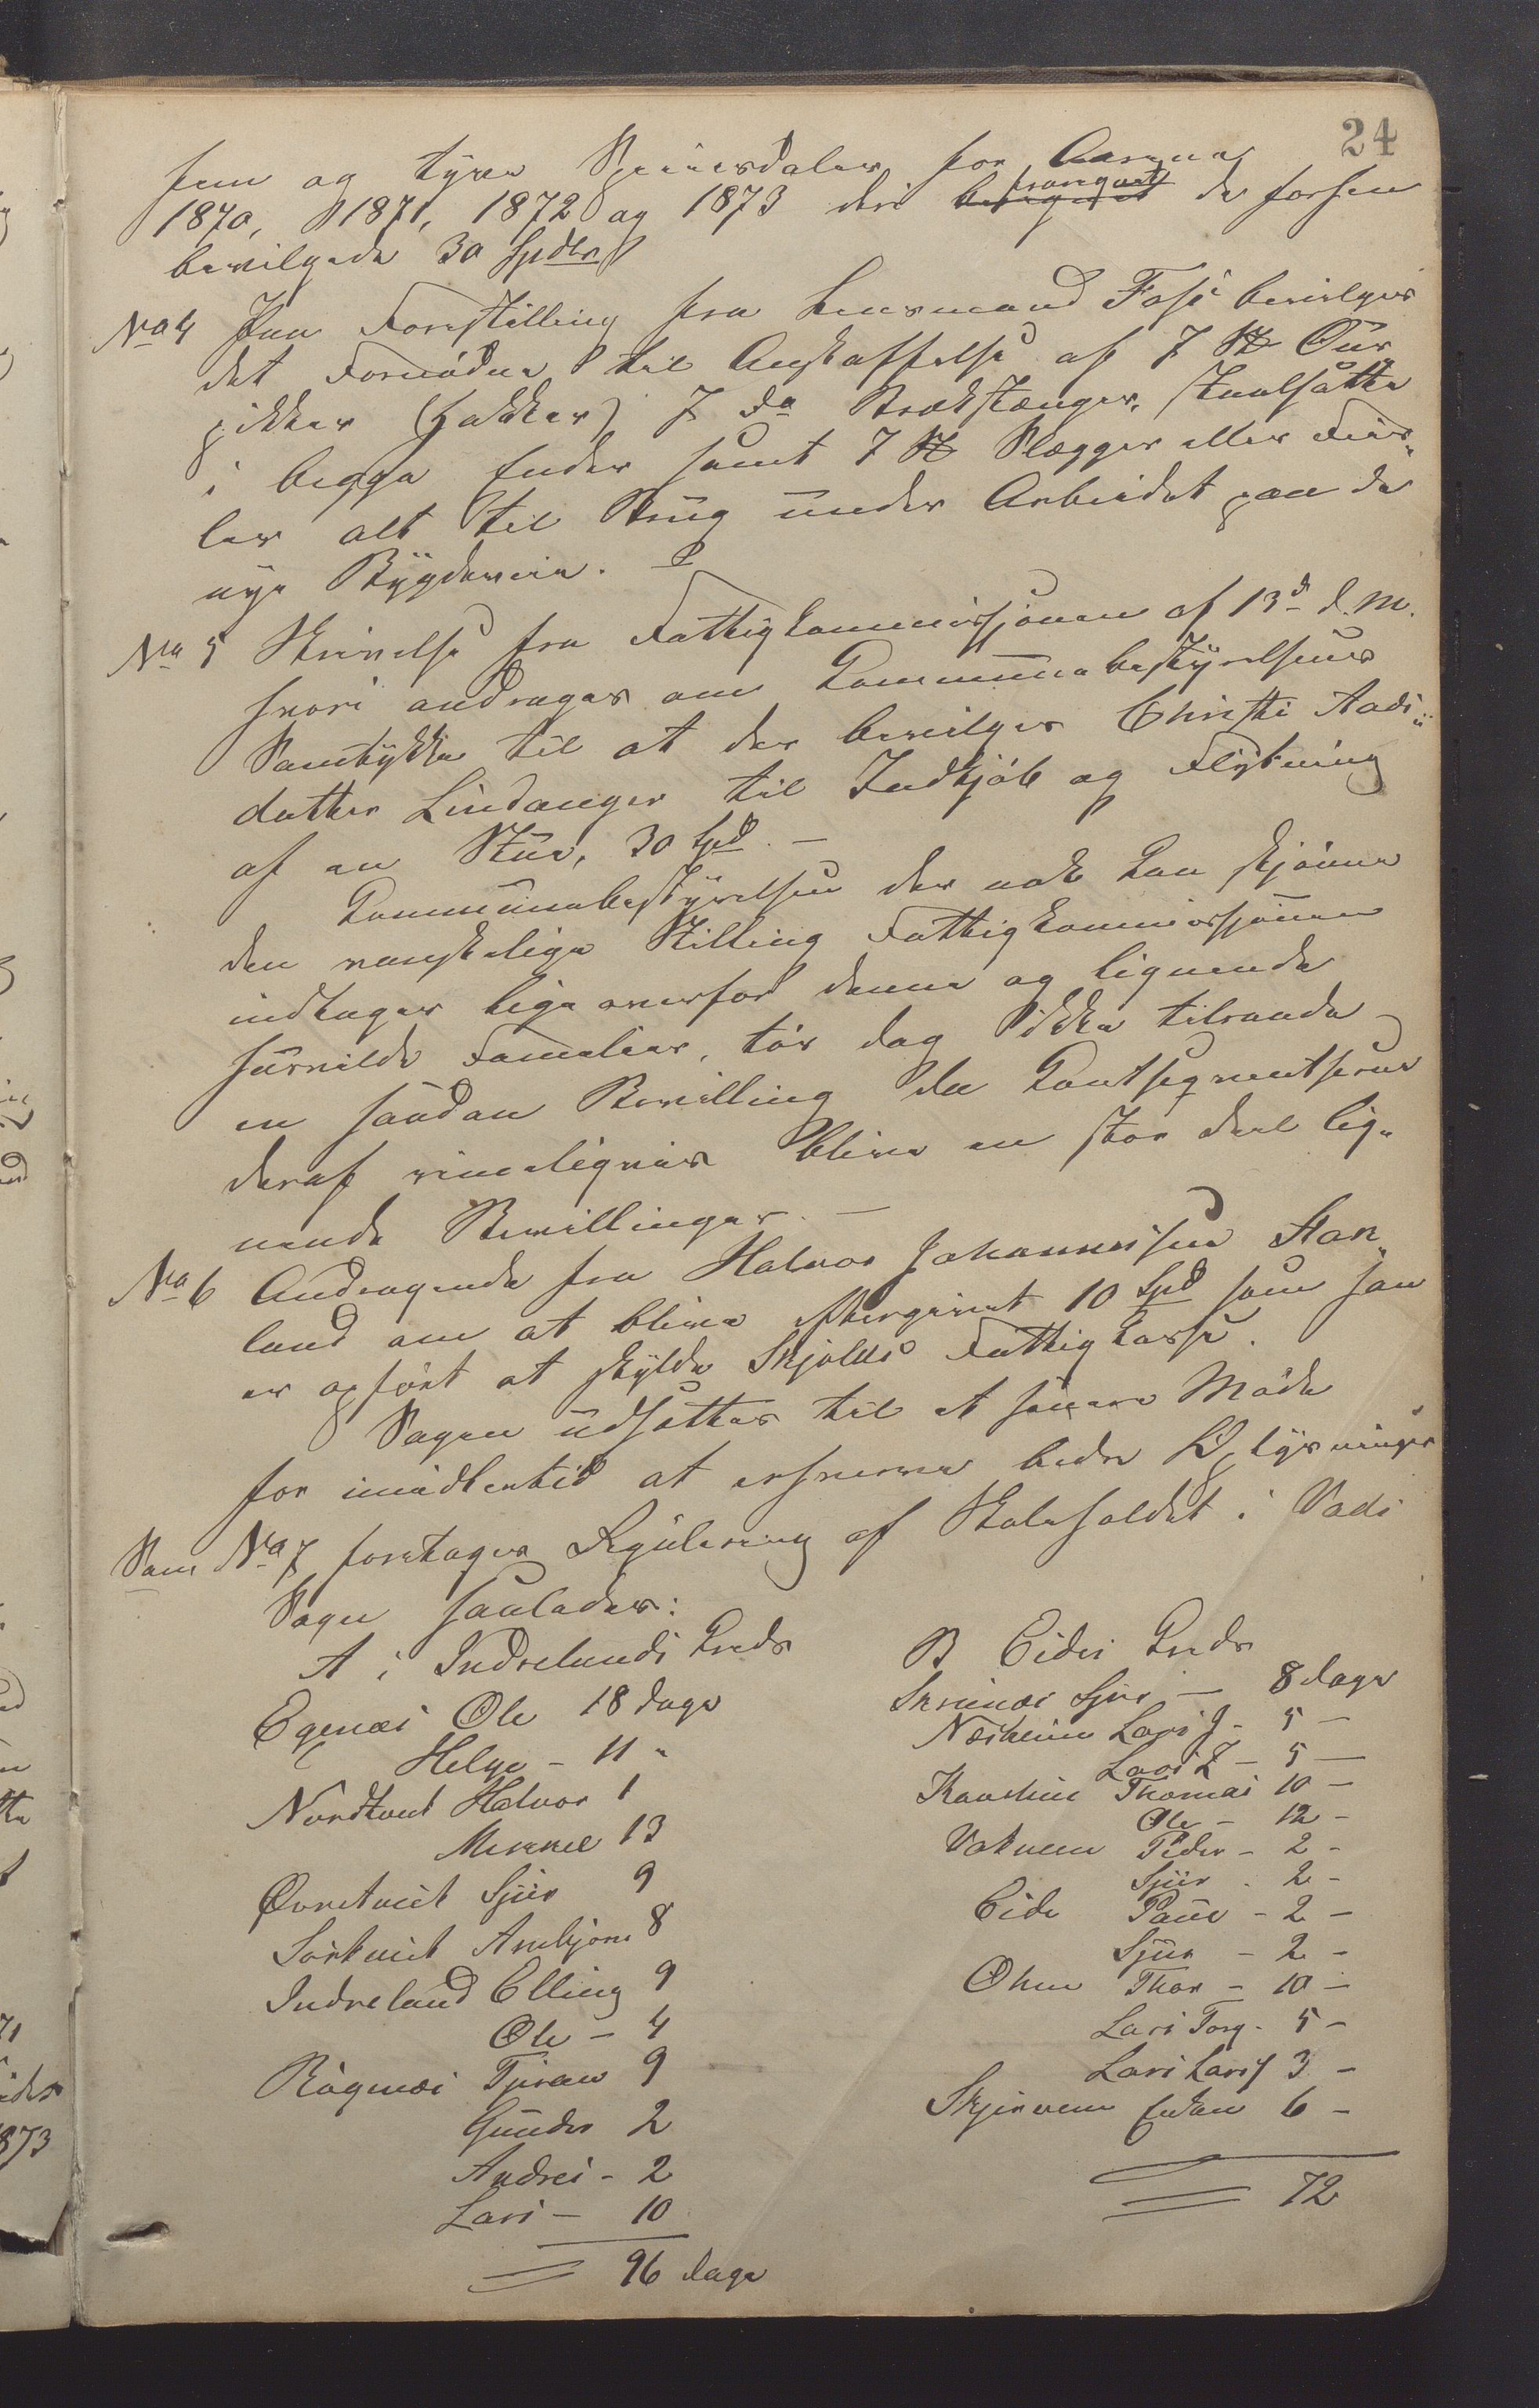 24
fem og tyve Speciesdaler for Aarene
1870, 1871, 1872 og 1873 deri fraregnet de forhen
bevilgede 30 Spdlr
No 4 Paa Forestilling fra Lensmand Fose bevilges
det Fornödne til Anskaffelse af 7 St Öür
pikker (Hakker) 7 do Brækstænger, Staalsatte
i begge Ender samt 7 St Slægger eller Feis„
ler alt til Brüg ünder Arbeidet paa de
nye Bygdeveie.
No 5 Skrivelse fra Fattigkommissjonen af 13d d. M.
hvori andrages om Kommünebestyrelsens
Samtykke til at der bevilges Christi Aads„
datter Lindanger til Indkjöb og Flytning
af en Stüe, 30 Spd. —
Kommünebestyrelsen der nok kan skjönne
den vanskelige Stilling Fattigkommissjonen
indtager lige overfor denne og lignende
husvilde Familier, tör dog ikke tilraade
en saadan Bevilling da Konseqventserne
deraf rimeligviis bliver en stor deel lig„
nende Bevillinger. —
No 6 Andragende fra Halvor Johannessen Haa„
land om at blive eftergivet 10 Spd som han
er opfört at skylde Skjolds Fattigkasse.
Sagen üdsættes til et senere Möde
for imidlertid at erhverve bedre Oplysninger
Som No 7 foretages Regülering af Skoleholdet i Vads
Sogn saaledes:
A i Indrelands Kreds
Egenæs Ole 18 dage
Helge - 11 „
Nordtveit Halvor 1
Mikkel 13
Övretveit Sjür 9
Sörtveit Arnbjörn 8
Indreland Elling 9
Ole - 4
Rögenæs Tjeran 9
Günder 2
Andres - 2
Lars - 10
96 dage
B Eides Kreds
Skeisnæs Sjür — 8 dage
Næsheim Lars J - 5 —
Lars L - 5 —
Kambene Thomas 10 —
Ole - 12 -
Vatnem Peder - 2 -
Sjür - 2 -
Eide Paüe - 2 —
Sjür - 2 -
Ohm Thor - 10 —
Lars Torg - 5 —
Lars Larss 3 —
Skjerveim Enken 6 —
72